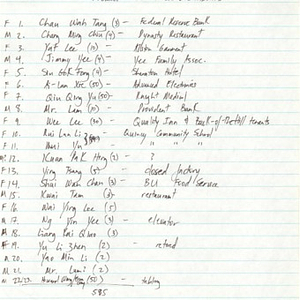 F 1. Chan Wah Tang (3) - Federal Reserve Bank
M 2. Chung Ming Chin (4) - Dynasty Restaurant
F 3. Yat Lee (10) - Garment
M 4. Jimmy Yee (4) - Yee Family Assoc.
F 5. Sau Gok Fong (4) - Sheraton Hotel
F 6. A-Lan Xie (50) - Advanced Electronics
F 7. Qiu Qing Yu (50) - Knight Medical
M 8. Mr. Lim (10) - Provident Bank
F 9. Wee Lee (30) - Quality Inn & Back-of-Hotel tenants
F 10. Rui Lan Li - Quincy Community School
F 11. Yu - " " "
M 12. Kuan Yak Hong (2) - ?
F 13. Ying Tsang (5) - closed factory
F 14. Shui Wah Chan (3) - BU Food/Service
M 15. Kwai Tam (3) - restaurant
F 16. Wai Ying Lee (5)
M 17. Ng Yin Yee (3) - elevator
M 18. Liang Kai Qiao (3)
F 19. Yu Li Zhen (2) - retired
M 20. Yao Min Li (2)
M 21. Mr. Lami (2)
M 22/23. (50) - tabling
585